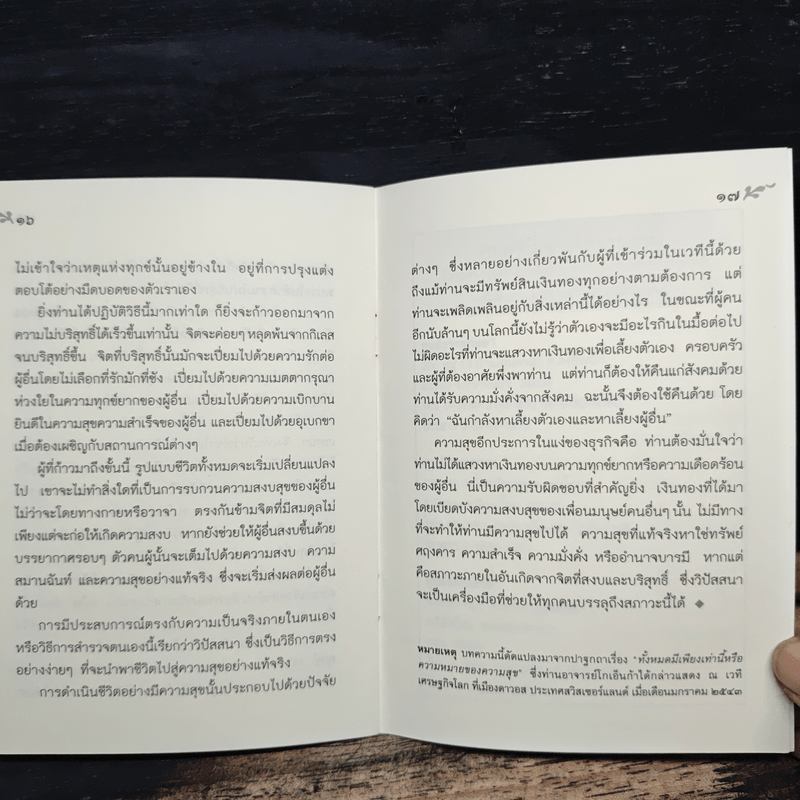 ๑๖
ไม่เข้าใจว่าเหตุแห่งทุกข์นั้นอยู่ข้างใน อยู่ที่การปรุงแต่ง
ตอบโต้อย่างมืดบอดของตัวเราเอง
ยิ่งท่านได้ปฏิบัติวิธีนี้มากเท่าใด ก็ยิ่งจะก้าวออกมาจาก
ความไม่บริสุทธิ์ได้เร็วขึ้นเท่านั้น จิตจะค่อยๆ หลุดพ้นจากกิเลส
จนบริสุทธิ์ขึ้น จิตที่บริสุทธิ์นั้นมักจะเปี่ยมไปด้วยความรักต่อ
ผู้อื่นโดยไม่เลือกที่รักมักที่ชัง เปี่ยมไปด้วยความเมตตากรุณา
ห่วงใยในความทุกข์ยากของผู้อื่น เปี่ยมไปด้วยความเบิกบาน
ยินดีในความสุขความสำเร็จของผู้อื่น และเปี่ยมไปด้วยอุเบกขา
เมื่อต้องเผชิญกับสถานการณ์ต่างๆ
ผู้ที่ก้าวมาถึงขั้นนี้ รูปแบบชีวิตทั้งหมดจะเริ่มเปลี่ยนแปลง
ไป เขาจะไม่ทำสิ่งใดที่เป็นการรบกวนความสงบสุขของผู้อื่น
ไม่ว่าจะโดยทางกายหรือวาจา ตรงกันข้ามจิตที่มีสมดุลไม่
เพียงแต่จะก่อให้เกิดความสงบ หากยังช่วยให้ผู้อื่นสงบขึ้นด้วย
บรรยากาศรอบๆ ตัวคนผู้นั้นจะเต็มไปด้วยความสงบ ความ
สมานฉันท์ และความสุขอย่างแท้จริง ซึ่งจะเริ่มส่งผลต่อผู้อื่น
ด้วย
การมีประสบการณ์ตรงกับความเป็นจริงภายในตนเอง
หรือวิธีการสำรวจตนเองนี้เรียกว่าวิปัสสนา ซึ่งเป็นวิธีการตรง
อย่างง่ายๆ ที่จะนำพาชีวิตไปสู่ความสุขอย่างแท้จริง
การดำเนินชีวิตอย่างมีความสุขนั้นประกอบไปด้วยปัจจัย
๑๗
ต่างๆ ซึ่งหลายอย่างเกี่ยวพันกับผู้ที่เข้าร่วมในเวทีนี้ด้วย
ถึงแม้ท่านจะมีทรัพย์สินเงินทองทุกอย่างตามต้องการ แต่
ท่านจะเพลิดเพลินอยู่กับสิ่งเหล่านี้ได้อย่างไร ในขณะที่ผู้คน
อีกนับล้านๆ บนโลกนี้ยังไม่รู้ว่าตัวเองจะมีอะไรกินในมื้อต่อไป
ไม่ผิดอะไรที่ท่านจะแสวงหาเงินทองเพื่อเลี้ยงตัวเอง ครอบครัว
และผู้ที่ต้องอาศัยพึ่งพาท่าน แต่ท่านก็ต้องให้คืนแก่สังคมด้วย
ท่านได้รับความมั่งคั่งจากสังคม ฉะนั้นจึงต้องใช้คืนด้วย โดย
คิดว่า “ฉันกำลังหาเลี้ยงตัวเองและหาเลี้ยงผู้อื่น”
ความสุขอีกประการในแง่ของธุรกิจคือ ท่านต้องมั่นใจว่า
ท่านไม่ได้แสวงหาเงินทองบนความทุกข์ยากหรือความเดือดร้อน
ของผู้อื่น นี่เป็นความรับผิดชอบที่สำคัญยิ่ง เงินทองที่ได้มา
โดยเบียดบังความสงบสุขของเพื่อนมนุษย์คนอื่นๆ นั้น ไม่มีทาง
ที่จะทำให้ท่านมีความสุขไปได้ ความสุขที่แท้จริงหาใช่ทรัพย์
ศฤงคาร ความสำเร็จ ความมั่งคั่ง หรืออำนาจบารมี หากแต่
คือสภาวะภายในอันเกิดจากจิตที่สงบและบริสุทธิ์ ซึ่งวิปัสสนา
จะเป็นเครื่องมือที่ช่วยให้ทุกคนบรรลุถึงสภาวะนี้ได้ ◆
หมายเหตุ บทความนี้ดัดแปลงมาจากปาฐกถาเรื่อง “ทั้งหมดมีเพียงเท่านี้หรือ
ความหมายของความสุข” ซึ่งท่านอาจารย์โกเอ็นก้าได้กล่าวแสดง ณ เวที
เศรษฐกิจโลก ที่เมืองดาวอส ประเทศสวิสเซอร์แลนด์ เมื่อเดือนมกราคม ๒๕๔๓